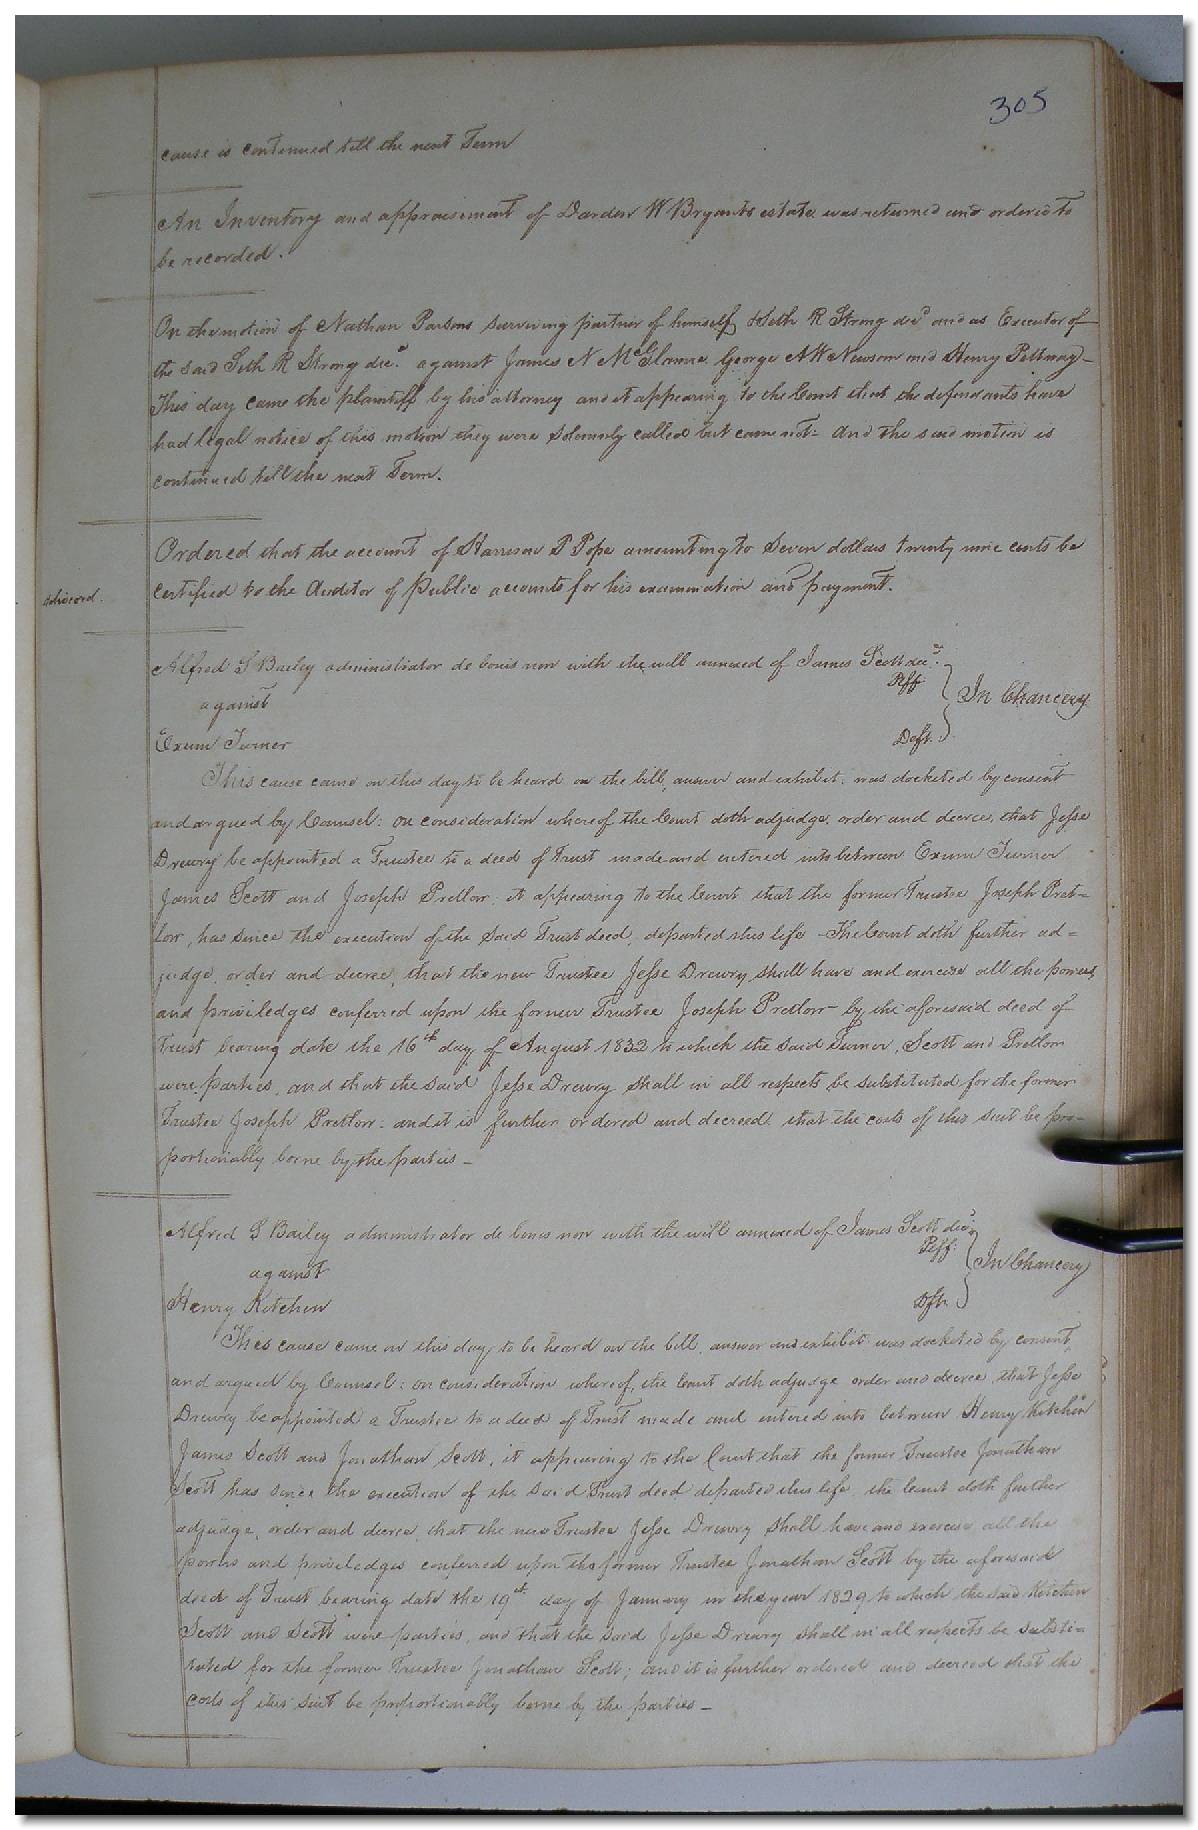 305
cause is continued till the next Term
An Inventory and appraisement of Darden W Bryants estate was returned and ordered to
be recorded.
On the motion of Nathan Parsons surviving partner of himself & Seth R Strong decd and as Executor of
the said Seth R Strong decd. against James N McElmore George A W Newsom and Henry Pettway -
This day came the plaintiff by his attorney and it appearing to the Court that the defendants have
had legal notice of this motion they were solemnly called but came not: And the said motion is
continued till the next Term.
Ordered that the account of Harrison P Pope amounting to Seven dollars twenty nine cents be
certified to the Auditor of Public accounts for his examination and payment.
Alfred S Bailey administrator de bonis non with the will annexed of James Scott decd.
Plff
against
In Chancery
Exum Turner
Deft.
This cause came on this day to be heard on the bill, answer and exhibit. was docketed by consent
and argued by Counsel: on consideration whereof the Court doth adjudge, order and decree, that Jesse
Drewry be appointed a Trustee to a deed of Trust made and entered into between Exum Turner
James Scott and Joseph Pretlow; it appearing to the Court that the former Trustee Joseph Pret-
low, has since the execution of the said Trust deed, departed this life - The Court doth further ad=
judge, order and decree, that the new Trustee Jesse Drewry shall have and exercise all the powers
and priviledges conferred upon the former Trustee Joseph Pretlow by the aforesaid deed of
Trust bearing date the 16th day of August 1832 to which the said Turner, Scott and Pretlow
were parties, and that the said Jesse Drewry shall in all respects be substituted for the former
Trustee Joseph Pretlow: and it is further ordered and decreed that the costs of this suit be pro-
portionably borne by the parties -
Alfred S Bailey administrator de bonis non with the will annexed of James Scott decd
Plff.
against
In Chancery
Henry Kitchen
Dft.
This cause came on this day to be heard on the bill, answer and exhibit was docketed by consent,
and argued by Counsel: on consideration whereof, the Court doth adjudge order and decree, that Jesse
Drewry be appointed a Trustee to a deed of Trust made and entered into between Henry Kitchen
James Scott and Jonathan Scott, it appearing to the Court that the former Trustee Jonathan
Scott has since the execution of the said Trust deed departed this life, the Court doth further
adjudge, order and decree, that the new Trustee Jesse Drewry shall have and exercise all the
powers and priviledges conferred upon the former Trustee Jonathan Scott by the aforesaid
deed of Trust bearing date the 19th day of January in the year 1829 to which the said Kitchen
Scott and Scott were parties, and that the said Jesse Drewry shall in all respects be substi=
tuted for the former Trustee Jonathan Scott; and it is further ordered and decreed that the
costs of this suit be proportionably borne by the parties -